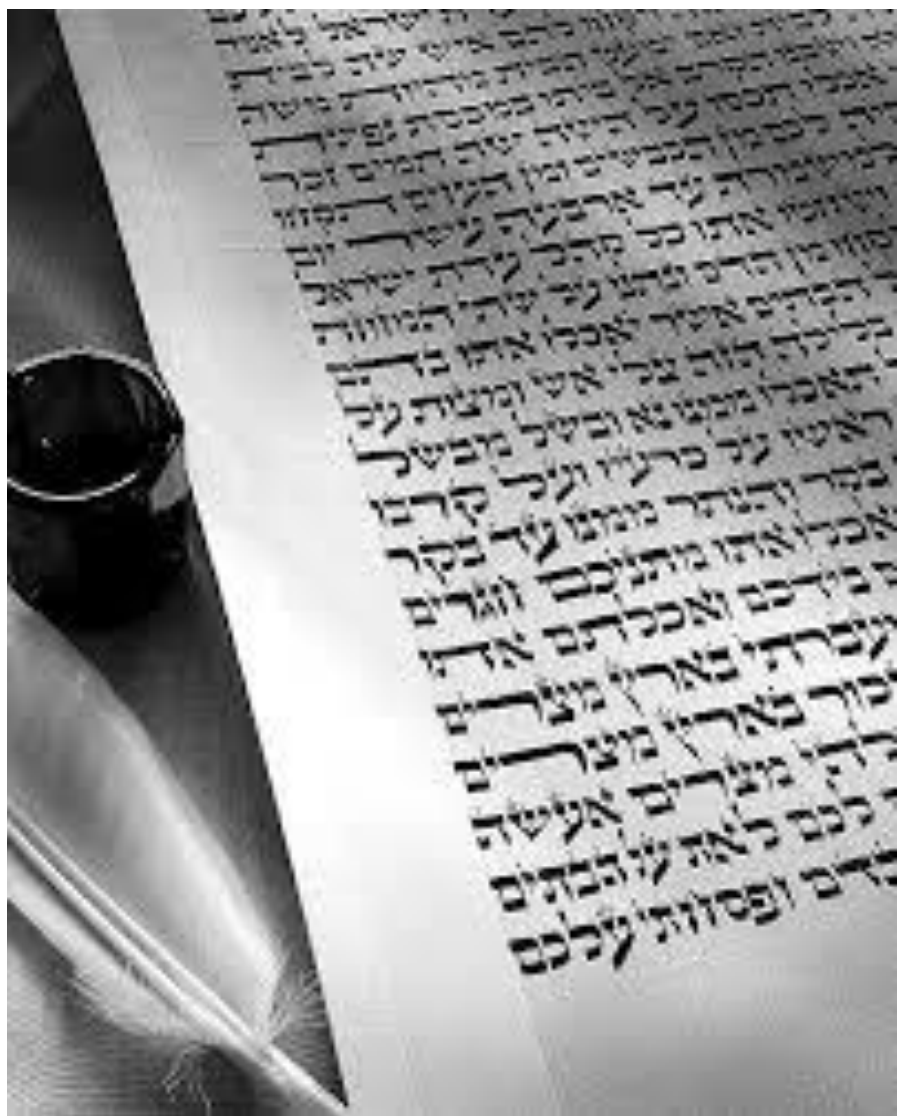 ישראל לאמר
להם איש שה לבית
ימעט הבית מהיות משה
ושכנו הקרב אל ביתו במכסת נפשת
אכלו תכסו על השה שה תמים זכר
לכם מן הכבשים ומן העזים תקחו
למשמרת עד ארבעה עשר יום
ושחטו אתו כל קהל עדת ישראל
מן הדם ונתנו על שתי המזוזת
הבתים אשר יאכלו אתו בהם
בלילה הזה צלי אש ומצות על
תאכלו ממנו נא ובשל מבשל
ראשו על כרעיו ועל קרבו
בקר והנתר ממנו עד בקר
תאכלו אתו מתניכם חגרים
בידכם ואכלתם אתו
ועברתי בארץ מצרים
בכור בארץ מצרים
אלהי מצרים אעשה
לכם לאת על הבתים
הדם ופסחתי עלכם